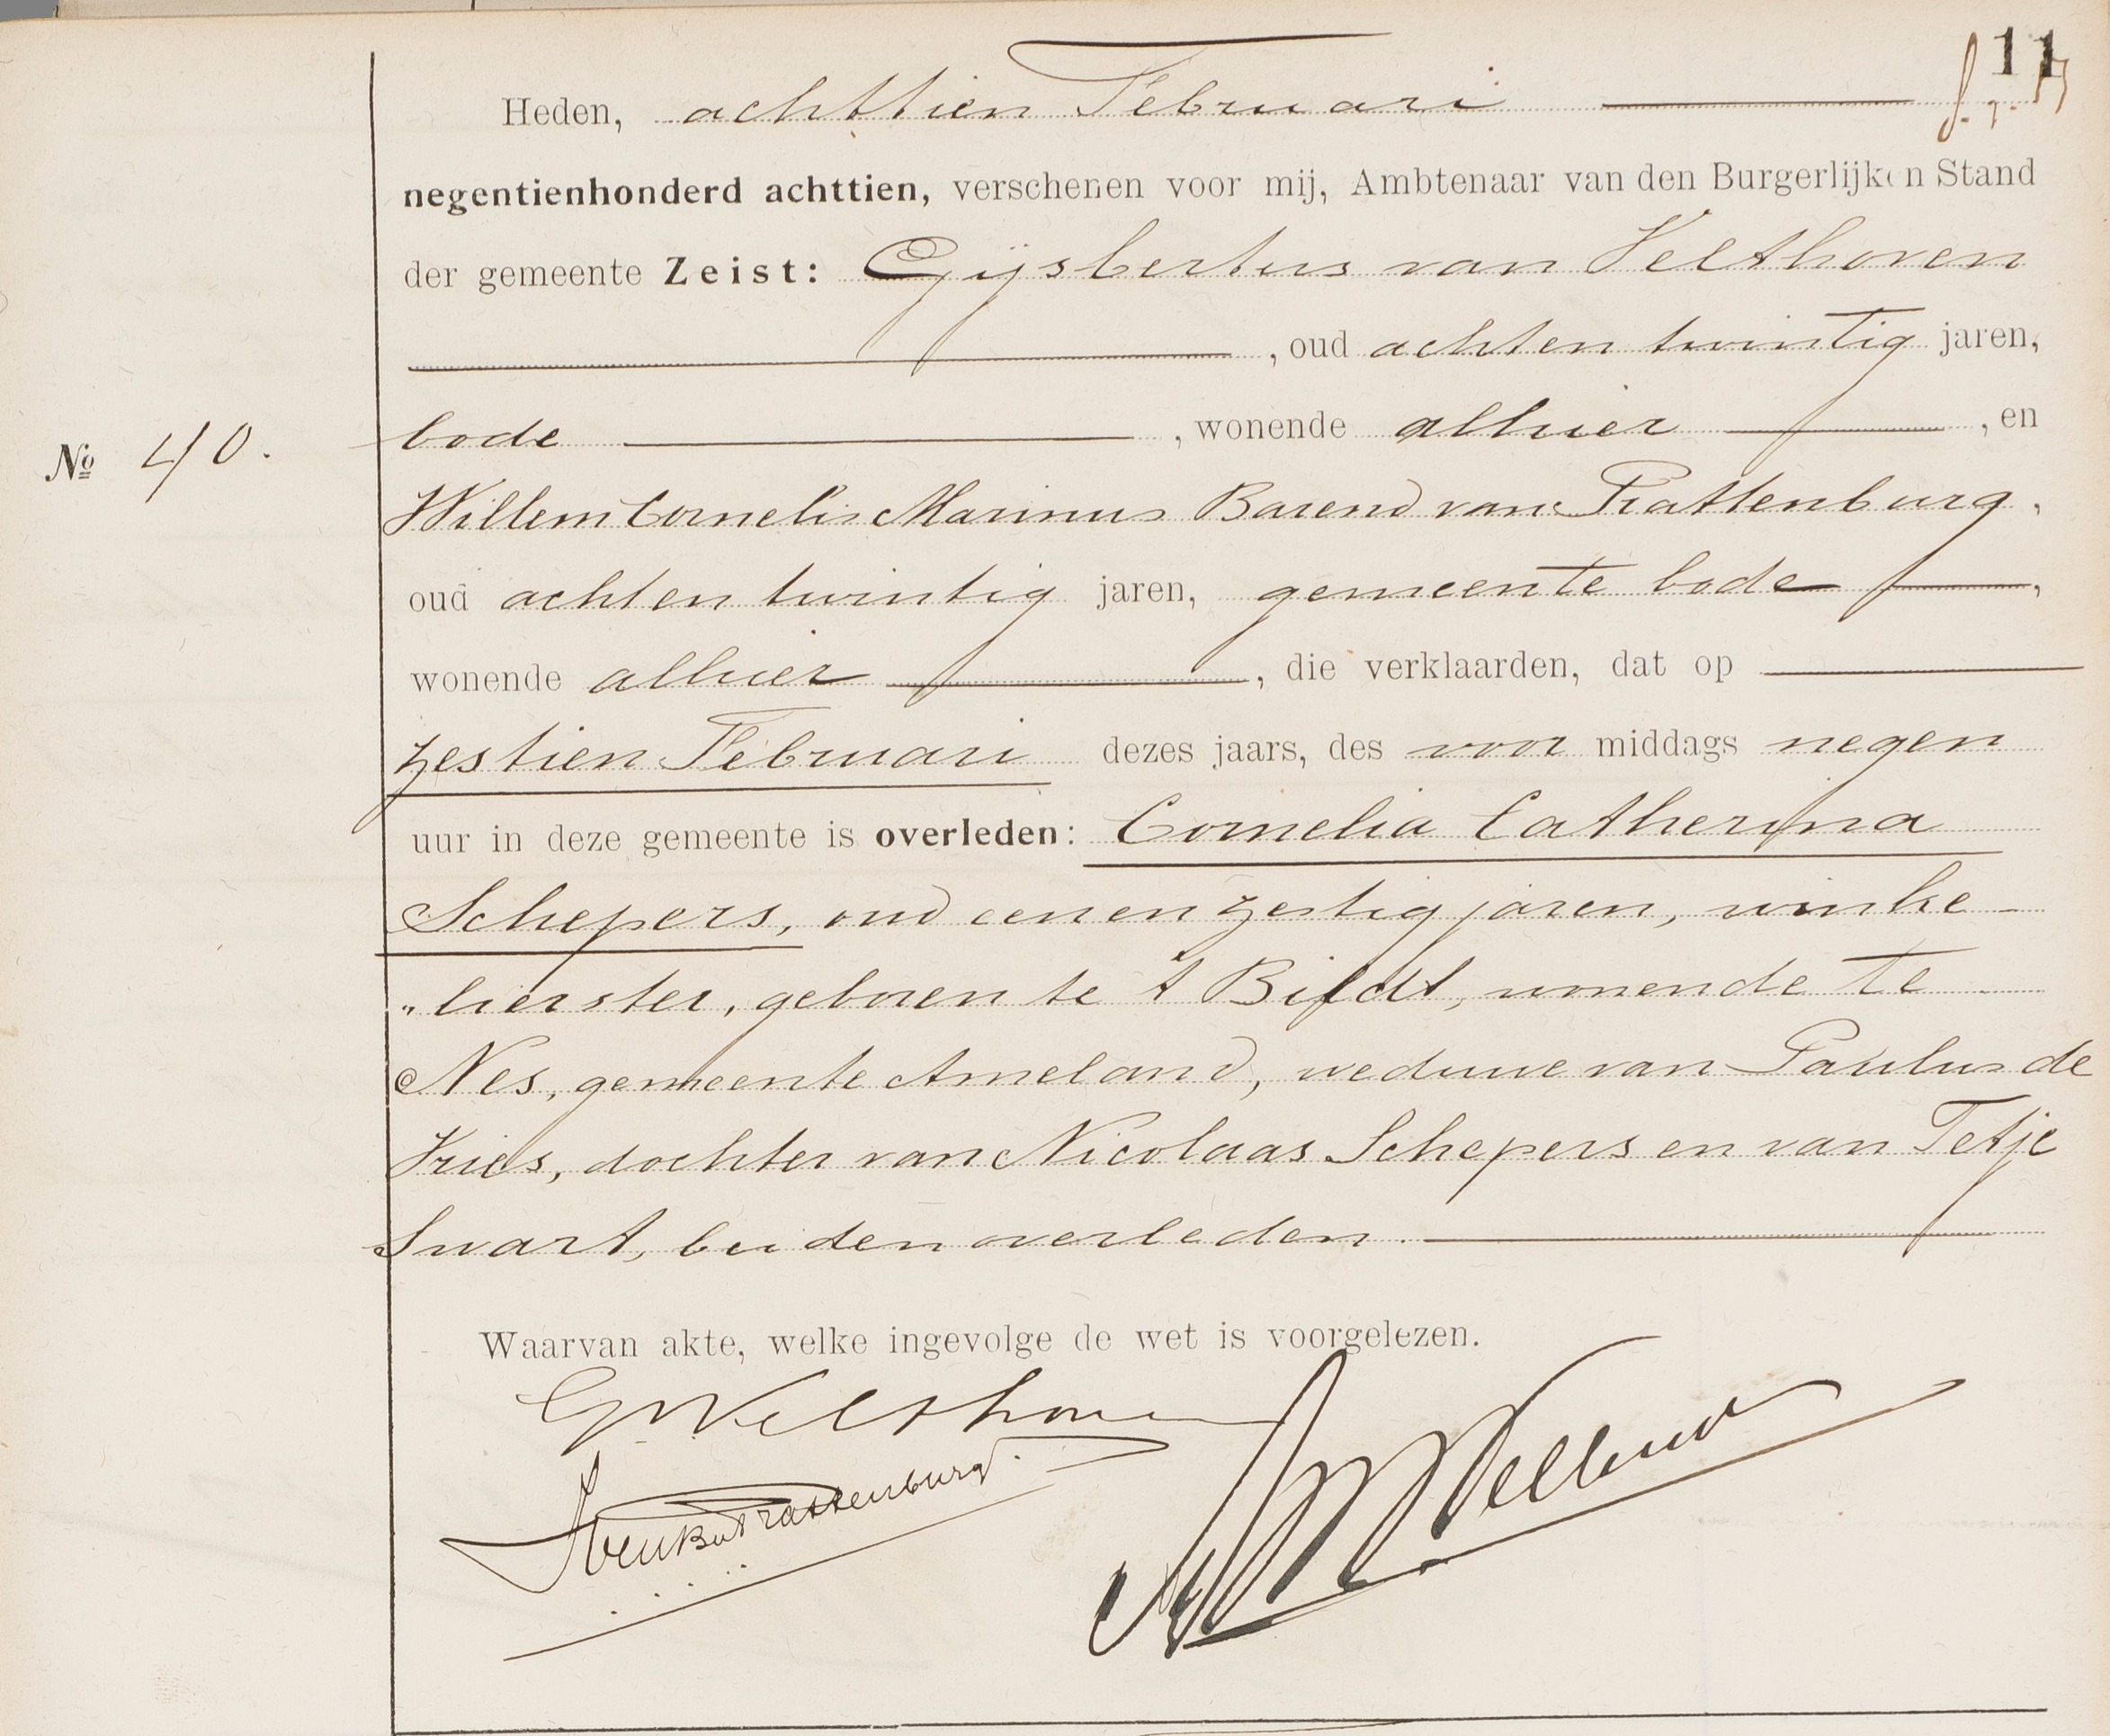 11
Heden, achttien Februari
negentienhonderd achttien, verschenen voor mij, Ambtenaar van den Burgerlijken Stand
der gemeente Zeist: Gijsbertus van Velthoven
, oud achten twintig jaren,
bode , wonende alhier , en
№ 40.
Willem Cornelis Marinus Barend van Trattenburg,
oud achten twintig jaren, gemeente bode ,
wonende alhier , die verklaarden, dat op
zestien Februari dezes jaars, des voor middags negen
uur in deze gemeente is overleden: Cornelia Catherina
Schepers, oud een en zestig jaren, winke
„ lierster, geboren te 't Bildt, wonende te
Nes, gemeente Ameland, weduwe van Paulus de
Vries, dochter van Nicolaas Schepers en van Tetje
Swart, beiden overleden.
Waarvan akte, welke ingevolge de wet is voorgelezen.
GvVelthoven
Trattenburg